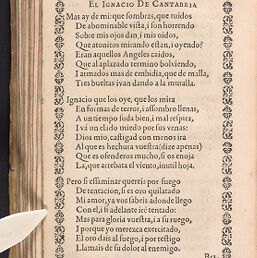 EL IGNACIO DE CANTABRIA
Mas ay de mi: que sombras, que ruidos
De abominable vista, i son horrendo
Sobre mis ojos dan i mis oidos,
Que atonitos mirando estàn, i oyendo?
Eran aquellos Angeles caidos,
Que al aplazado termino bolviendo,
I armados mas de embidia, que de malla,
Tres bueltas ivan dando a la muralla
Ignacio que los oye, que los mira
En formas de terror, i assombro llenas,
A un tiempo suda bien, i mal respira,
Ivá un elado miedo por sus venas:
Dios mio, castigad con menos ira
Al que es hechura vuestra (dize apenas)
Que es ofenderos mucho, si os enoja
La, que arrebata el viento, inutil hoja.
Pero si essaminar quereis por fuego
De tentacion, si es oro quilatado
Mi amor, ya vos sabeis adonde llego
Con el, i si adelante irè tentado:
Mas para gloria vuestra, i a su ruego,
I porque yo merezca exercitado,
El oro dais al fuego, i por testigo
Llamais de su dolor al enemigo.